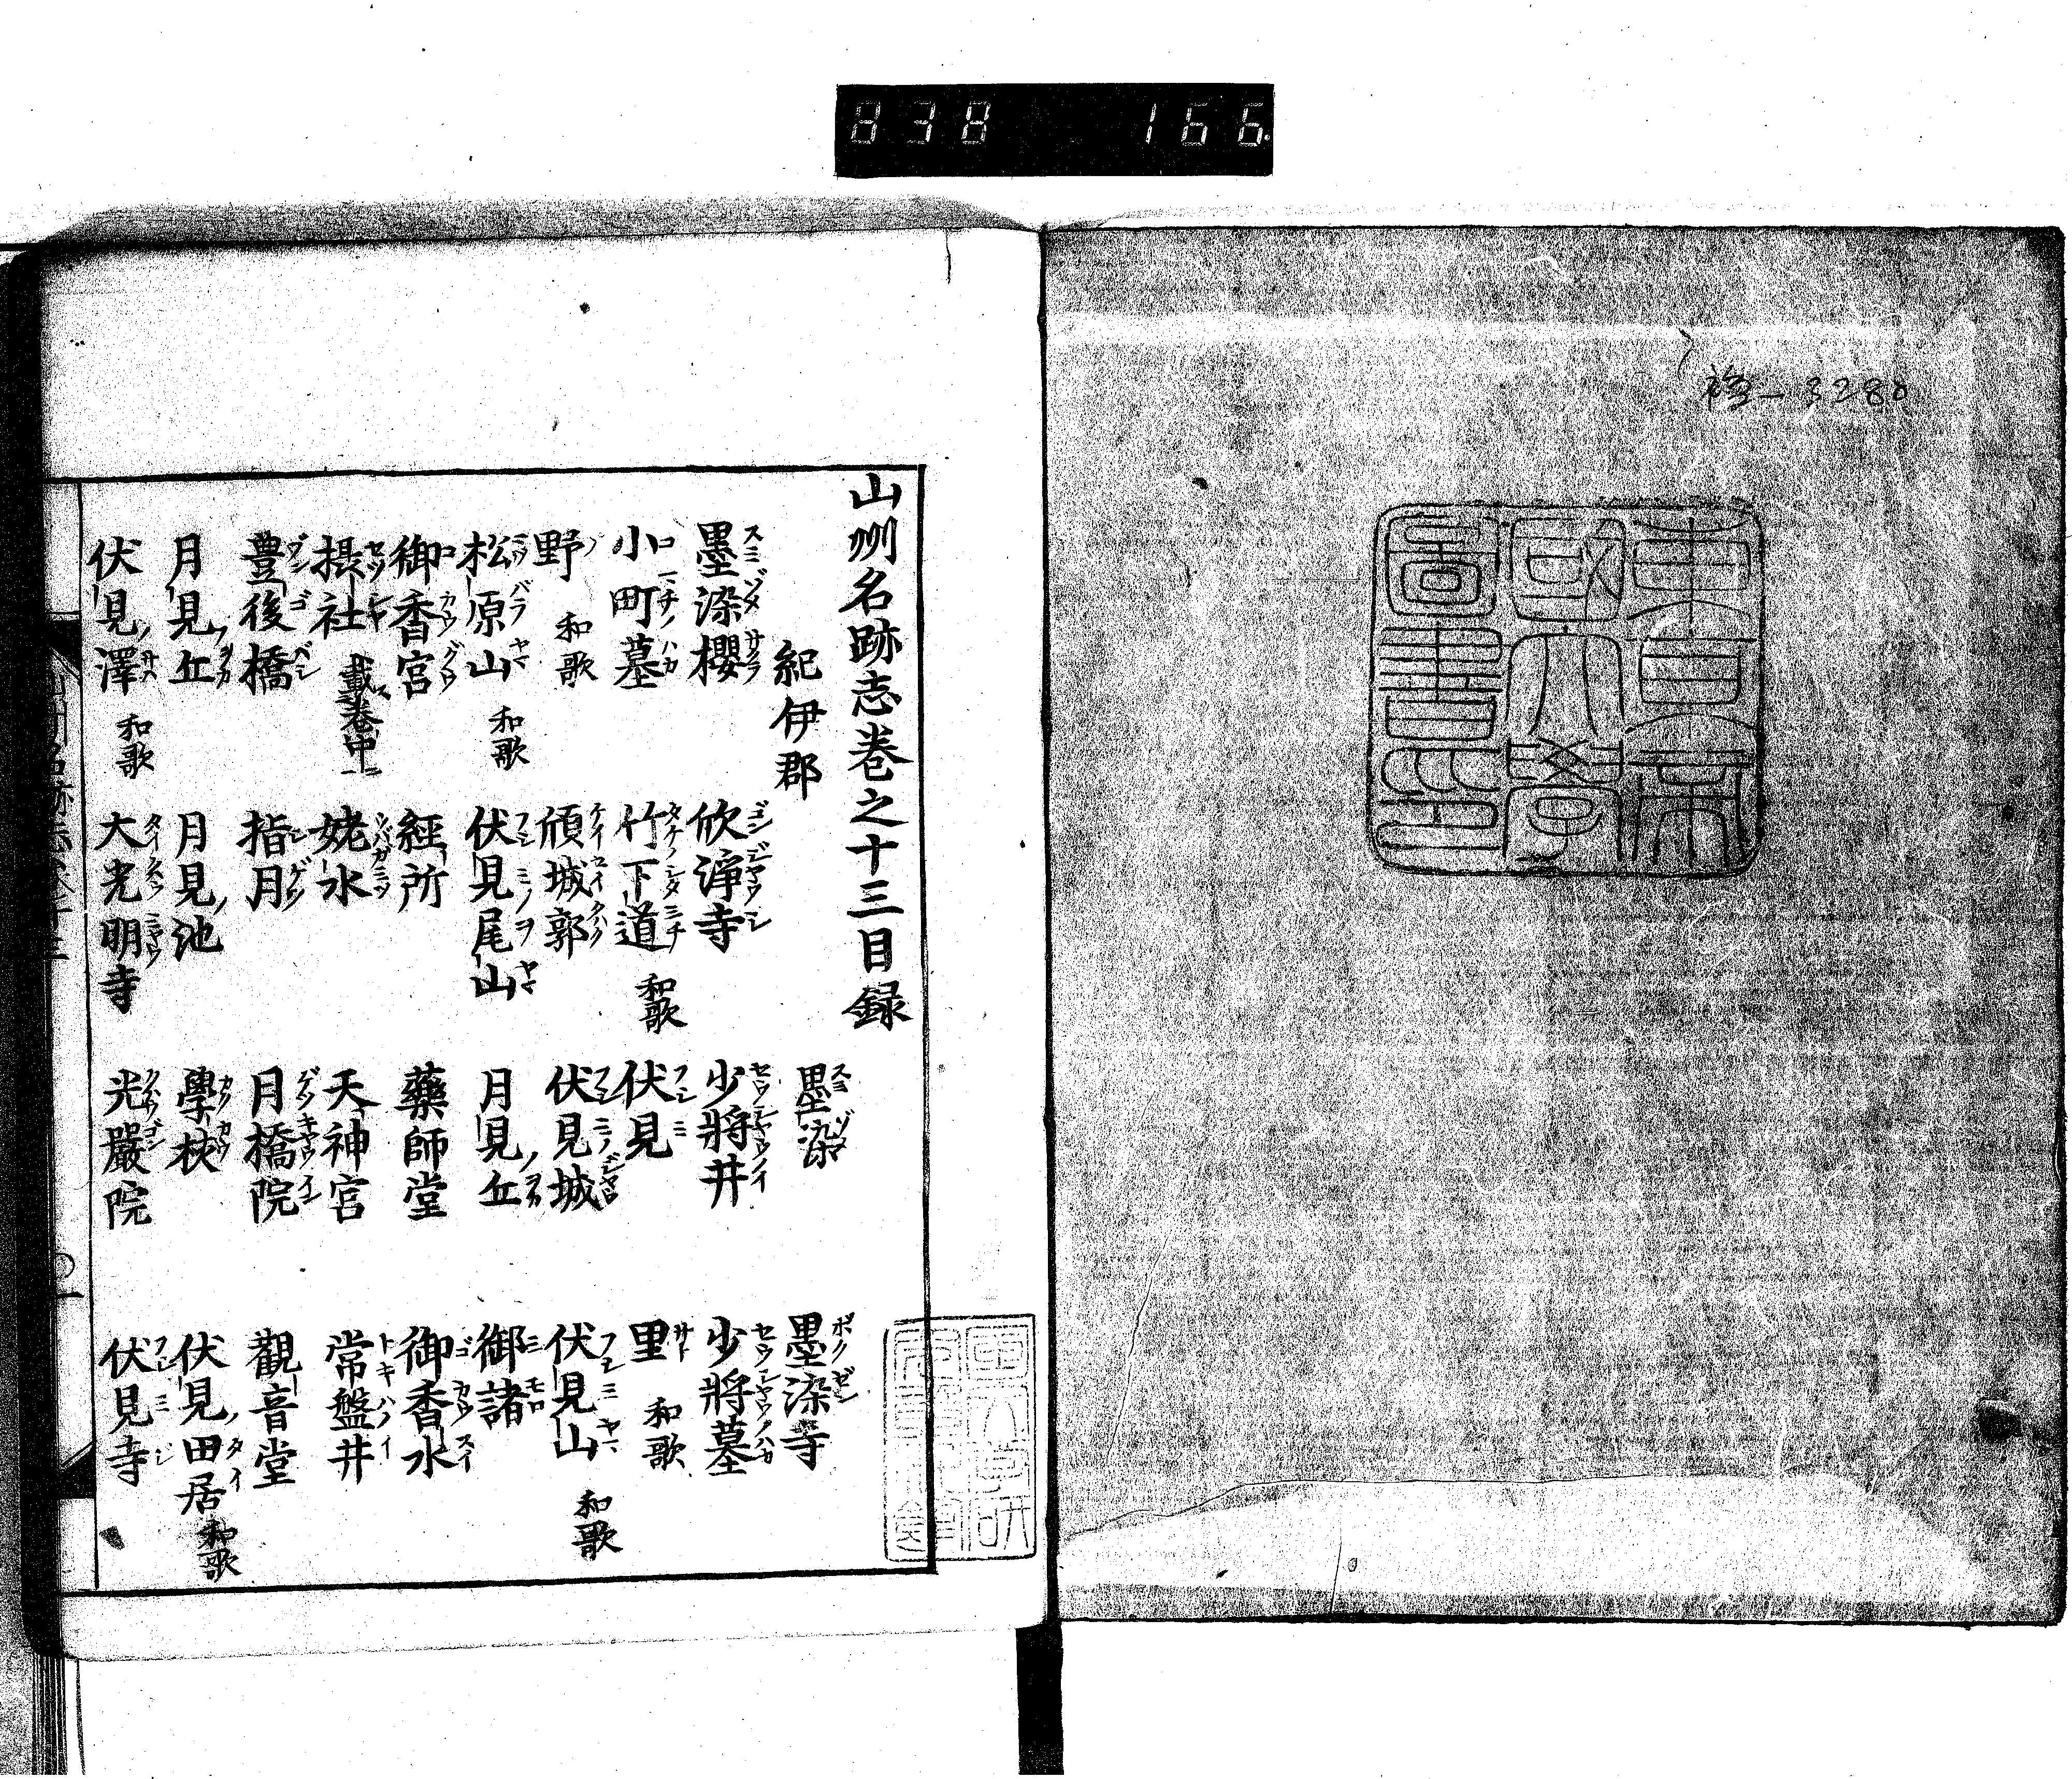 838 166
3280
東京帝
国大学
圖書印
山州名跡志巻之十三目録
紀伊郡 墨染 墨染寺
墨染櫻 欣淨寺 少將井 少將墓
小町墓 竹下道 和歌 伏見 里 和歌
野 和歌 傾城郭 伏見城 伏見山 和歌
松原山 和歌 伏見尾山 月見丘 御諸
御香宮 經所 藥師堂 御香水
摂社 載巻中 姥水 天神宮 常盤井
豊後橋 指月 月橋院 觀音堂
月見丘 月見池 學校 伏見田居 和歌
伏見澤 和歌 大光明寺 光嚴院 伏見寺